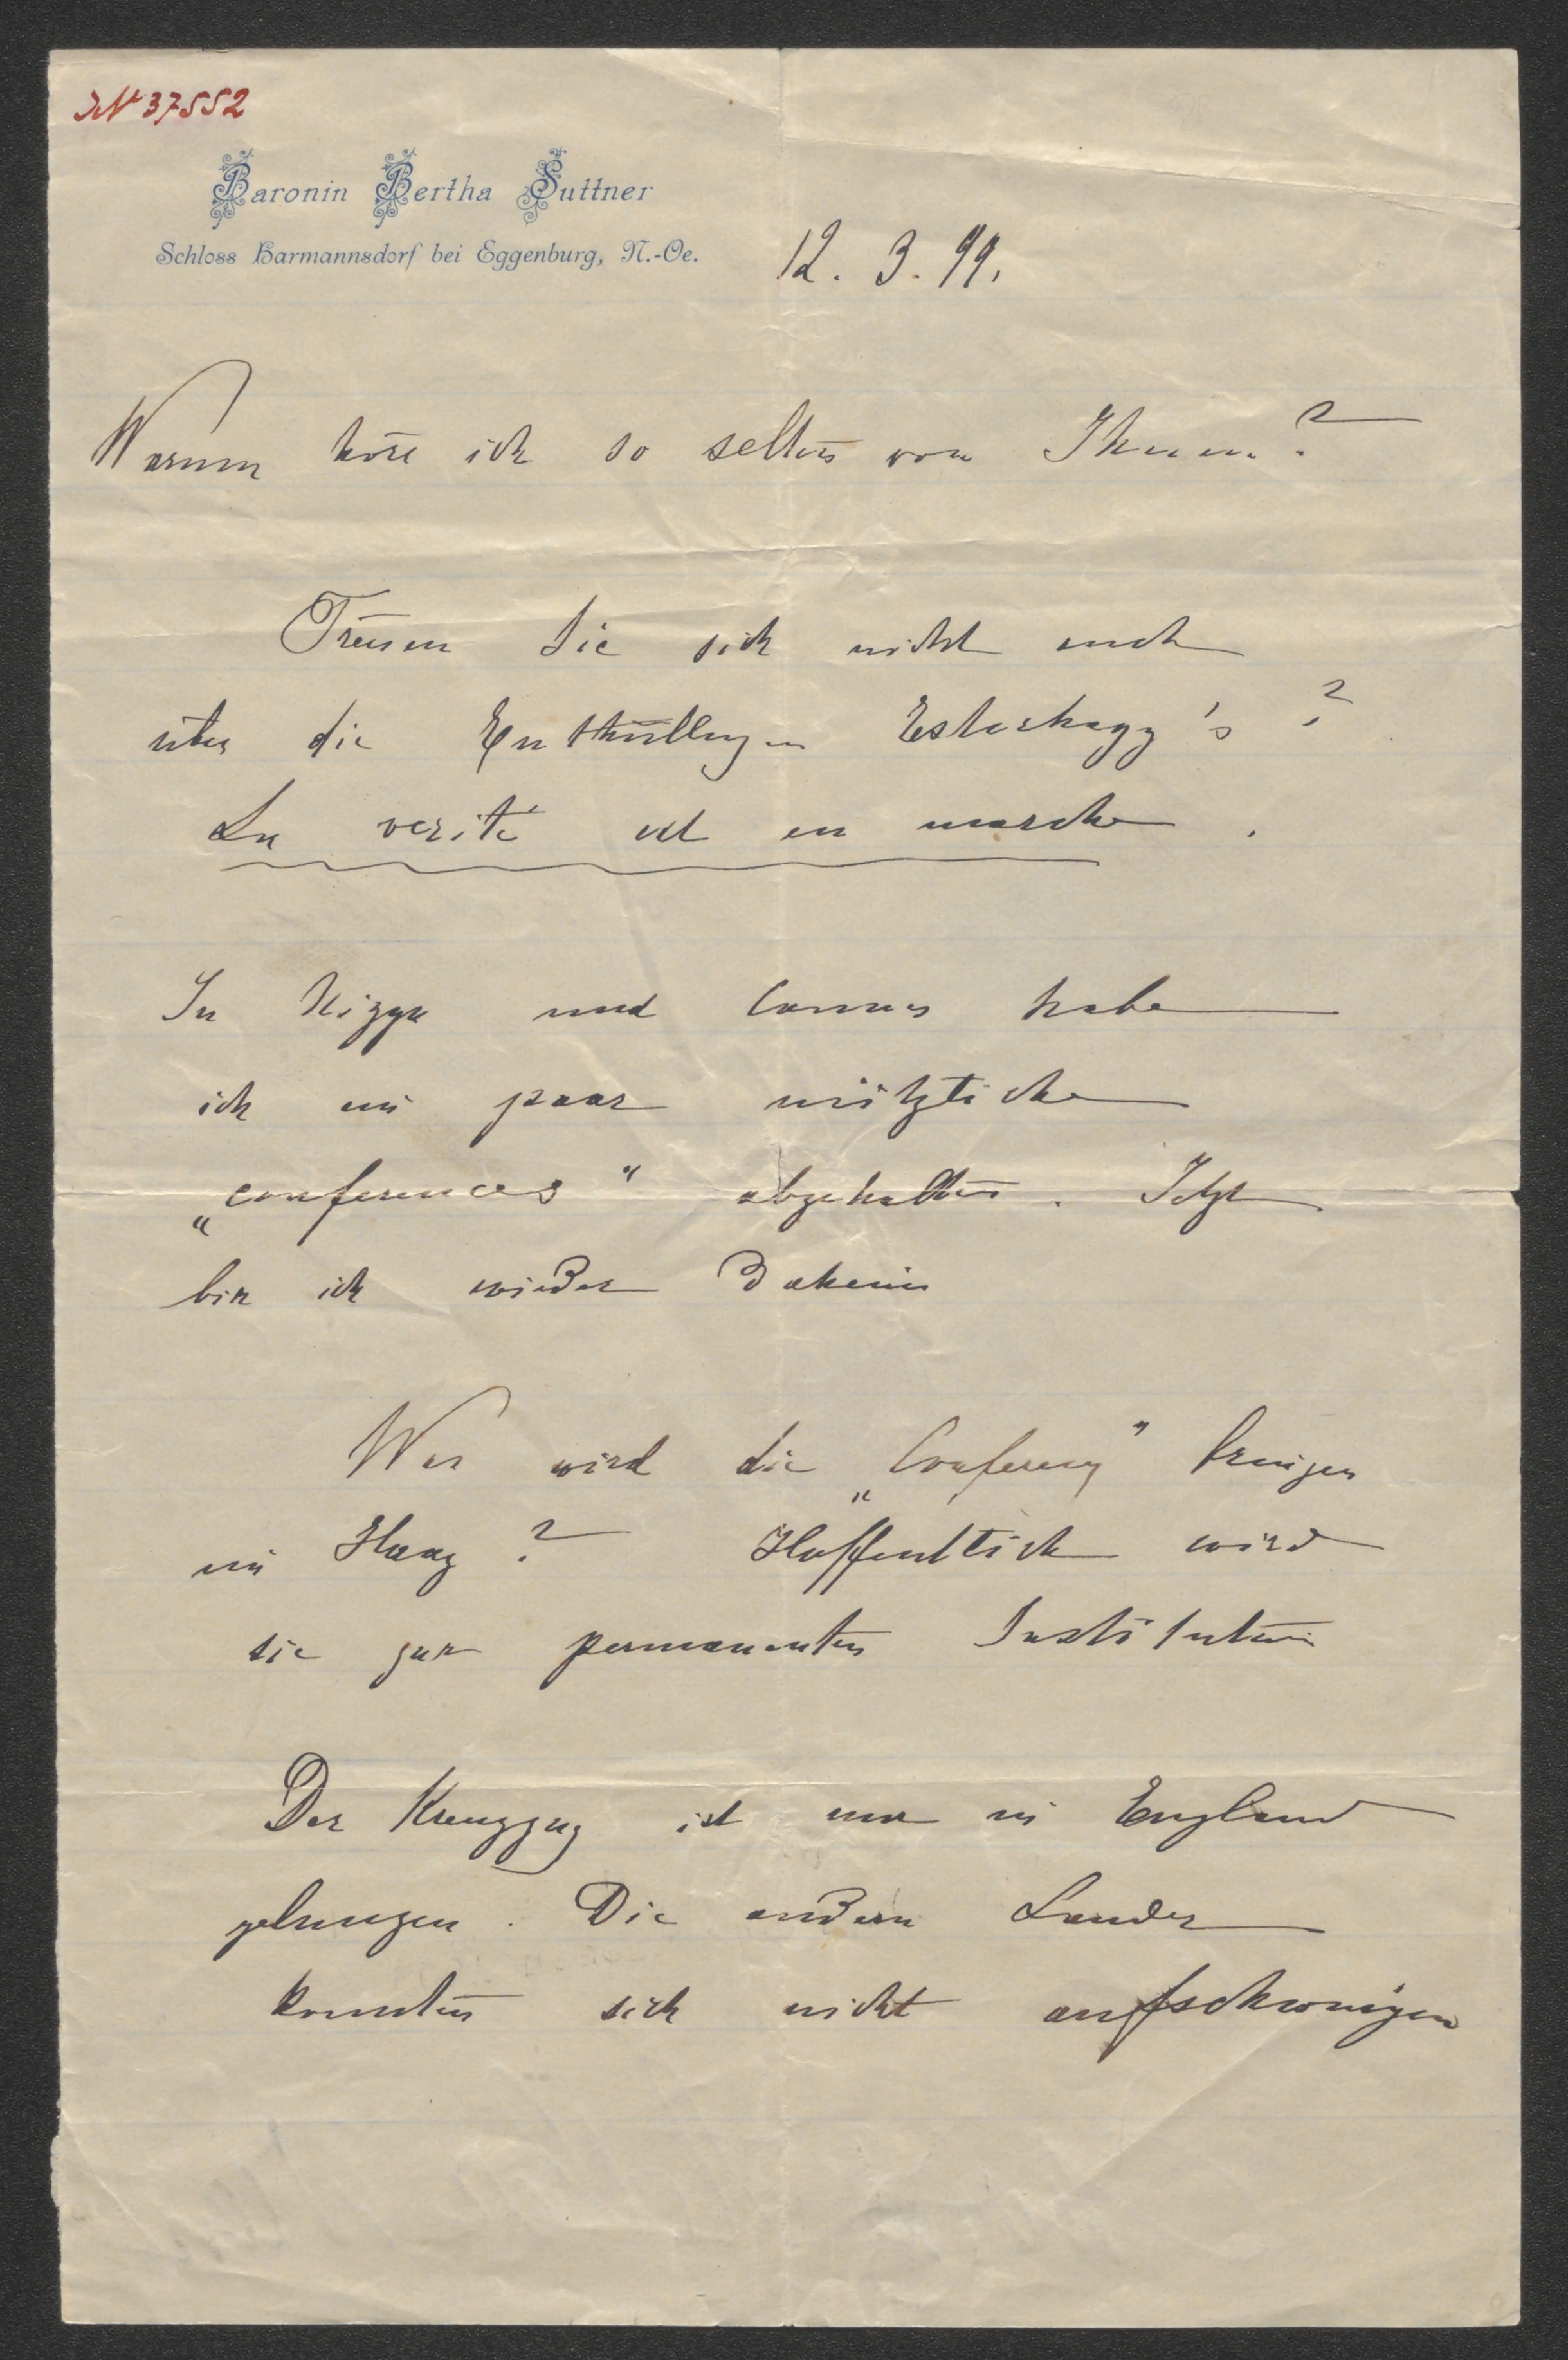 JN 37552
Baronin Bertha Suttner
Schloss Harmannsdorf bei Eggenburg, N.-Oe.
12. 3. 99.
Warum höre ich so selten von Ihnen?
Freuen Sie sich nicht auch
über die Enthüllungen Esterhazy's?
La verité est en marche.
In Nizza und Cannes habe
ich ein paar nützliche
„conferences“ abgehalten. Jetzt
bin ich wieder daheim
Was wird die „Conferenz“ bringen
im Haag? Hoffentlich wird
sie zur permanenten Institution
Der Kreuzzug ist nur in England
gelungen. Die andern Länder
konnten sich nicht aufschwingen